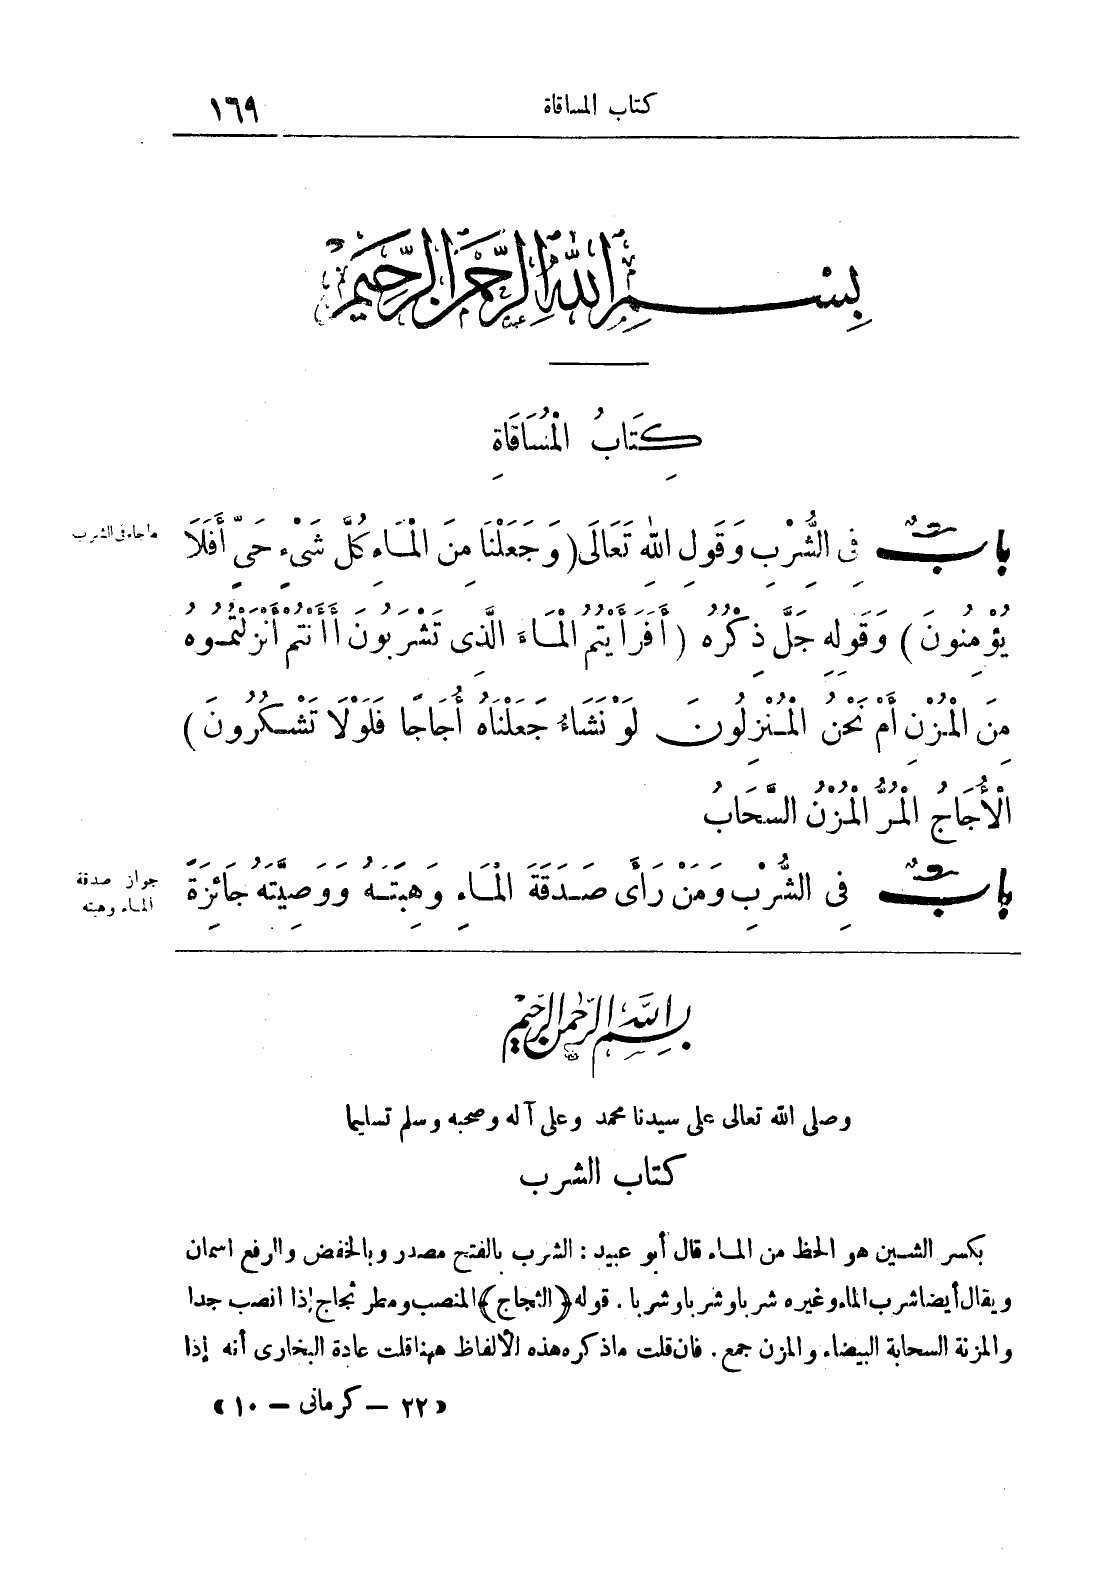 كتاب المساقاة ١٦٩
بِسْمِ اللهِ الرَّحْمنِ الرَّحِيمِ
كِتَابُ الْمُسَاقَاةِ
بابٌ فِى الشُّرْبِ وَقَوْلِ اللهِ تَعَالَى ( وَجَعَلْنَا مِنَ الْمَاءِ كُلَّ شَىْءٍ حَىٍّ أَفَلَا
ماجاء فى الشرب
يُؤْمِنُونَ ) وَقَوْلِهِ جَلَّ ذِكْرُهُ ( أَفَرَأَيْتُمُ الْمَاءَ الَّذِى تَشْرَبُونَ أَأَنْتُمْ أَنْزَلْتُمُوهُ
مِنَ الْمُزْنِ أَمْ نَحْنُ الْمُنْزِلُونَ لَوْ نَشَاءُ جَعَلْنَاهُ أُجَاجًا فَلَوْلَا تَشْكُرُونَ )
الْأُجَاجُ الْمُرُّ الْمُزْنُ السَّحَابُ
بابٌ فِى الشُّرْبِ وَمَنْ رَأَى صَدَقَةَ الْمَاءِ وَهِبَتَهُ وَوَصِيَّتَهُ جَائِزَةً
جواز صدقة
الماء وهبته
بسم الله الرحمن الرحيم
وصلى الله تعالى على سيدنا محمد وعلى آله وصحبه وسلم تسليما
كتاب الشرب
بكسر الشين هو الحظ من الماء قال أبو عبيد : الشرب بالفتح مصدر وبالخفض والرفع اسمان
ويقال أيضا شرب الماء وغيره شربا وشربا وشربا . قوله ﴿الثجاج﴾ المنصب ومطر ثجاج إذا انصب جدا
والمزنة السحابة البيضاء والمزن جمع . فان قلت ماذكره هذه الألفاظ ههنا قلت عادة البخارى أنه إذا
« ٢٢ – كرمانى – ١٠ »